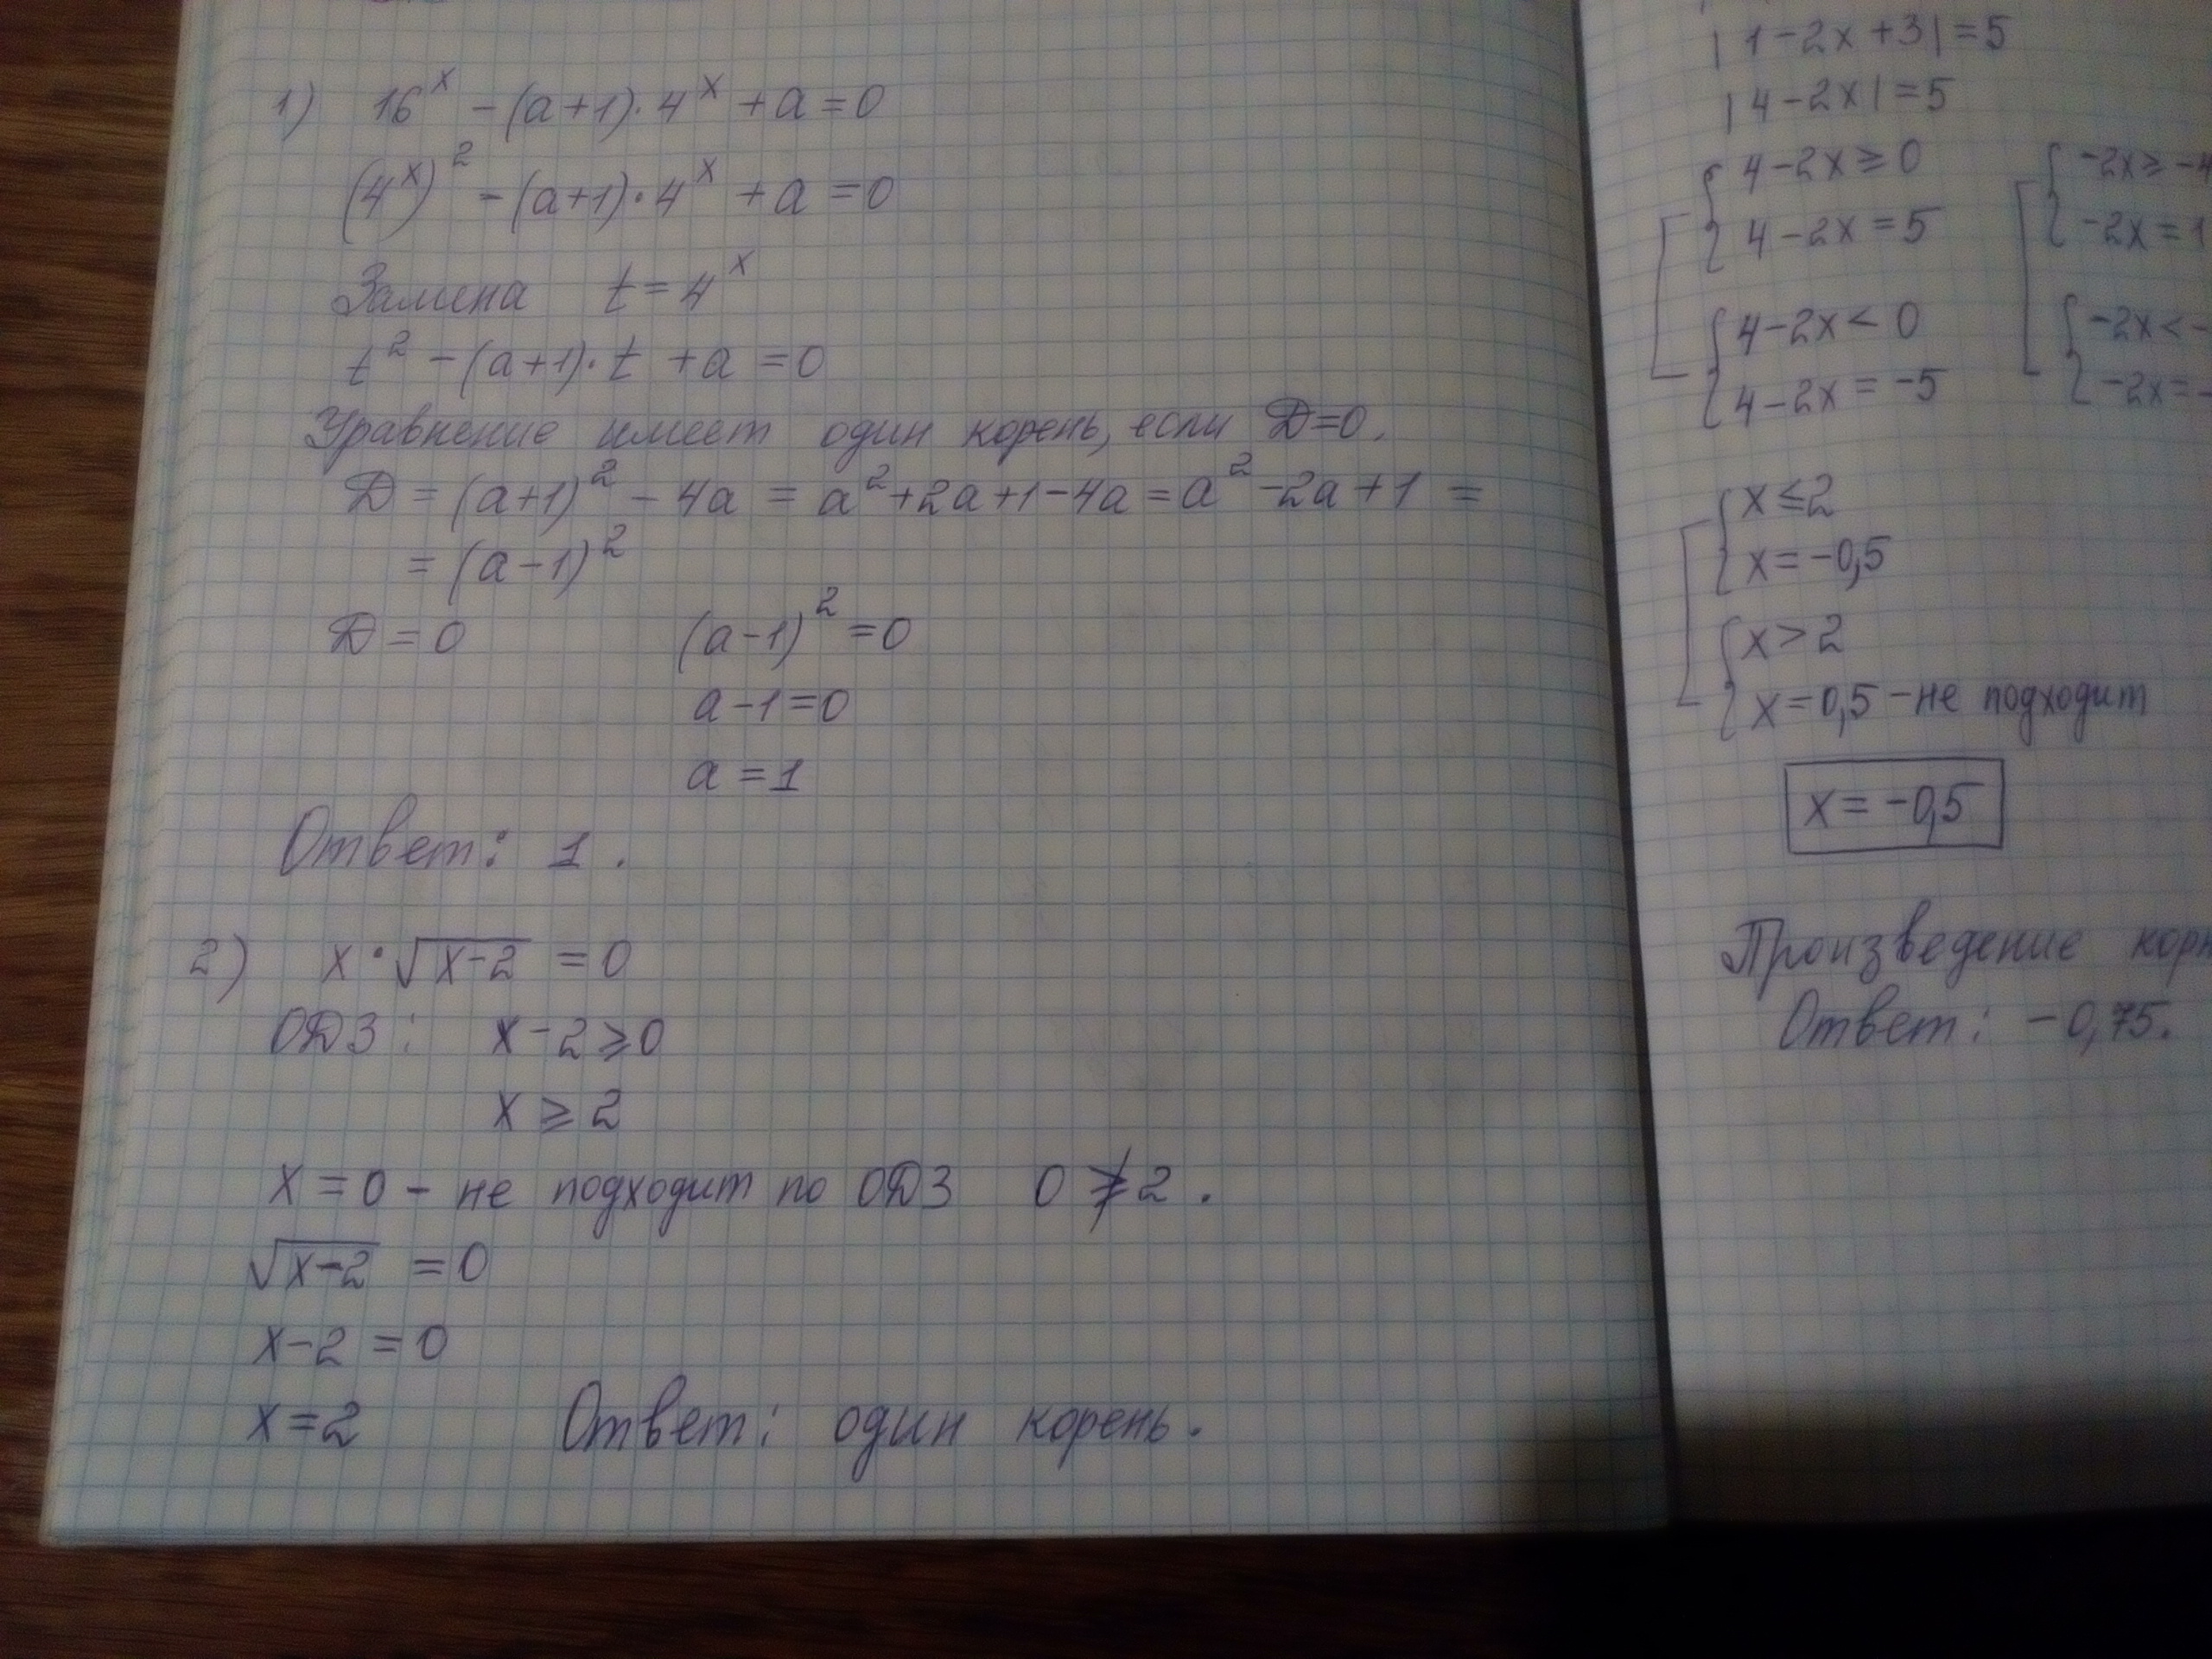 1) 16^x - (a+1)·4^x + a = 0
(4^x)^2 - (a+1)·4^x + a = 0
Замена t = 4^x
t^2 - (a+1)·t + a = 0
Уравнение имеет один корень, если D=0.
D = (a+1)^2 - 4a = a^2+2a+1-4a = a^2-2a+1 =
= (a-1)^2
D = 0 (a-1)^2 = 0
a-1=0
a = 1
Ответ: 1.
2) x·√(x-2) = 0
ОДЗ: x-2≥0
x ≥ 2
x = 0 - не подходит по ОДЗ 0 ≱ 2.
√(x-2) = 0
x-2 = 0
x=2 Ответ: один корень.
|1-2x+3|=5
|4-2x|=5
4-2x≥0 -2x≥-4
4-2x=5 -2x=1
4-2x<0 -2x<-
4-2x=-5 -2x=-
x≤2
x=-0,5
x>2
x=0,5 - не подходит
x=-0,5
Произведение
Ответ: -0,75.